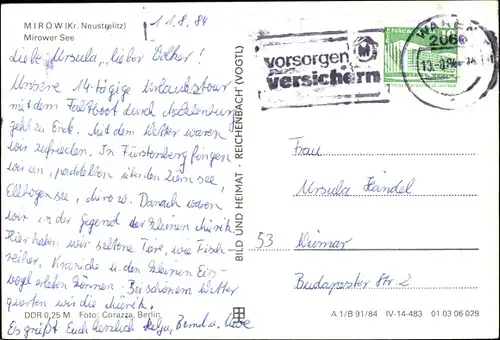 MIROW (Kr. Neustrelitz)
Mirower See
11.8.84
Liebe Ursula, lieber Volker!
Unsere 14-tägige Urlaubstour
mit dem Faltboot durch Mecklenburg
geht zu Ende. Mit dem Wetter waren
wir zufrieden. In Fürstenberg fingen
wir an, paddelten über den Ziernsee,
Ellbogensee, Mirow. Danach waren
wir in der Gegend der kleinen Müritz.
Hier haben wir seltene Tiere, wie Fisch-
reiher, Kraniche u. den kleinen Eis-
vogel erleben können. Bei schönem Wetter
querten wir die Müritz.
Es grüßt Euch herzlich Helga, Bernd u. Uwe
DDR 0,25 M Foto: Corazza, Berlin
BILD UND HEIMAT · REICHENBACH (VOGTL)
vorsorgen
versichern
WAREN
2060
Frau
Ursula Händel
53 Weimar
Budapester Str. 2
A 1/B 91/84 IV-14-483 01 03 06 029